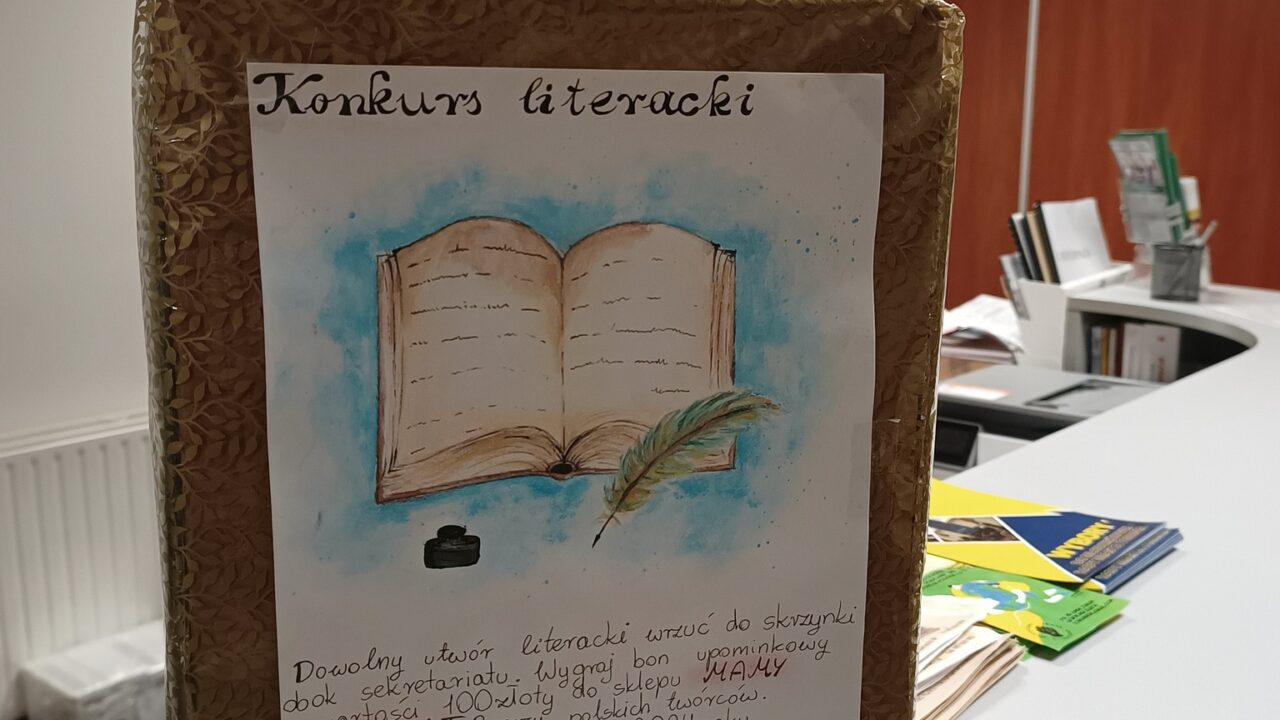 Konkurs literacki
Dowolny utwór literacki wrzuć do skrzynki
obok sekretariatu. Wygraj bon upominkowy
wartości 100złoty do sklepu MAMY
polskich twórców.
WYBORY